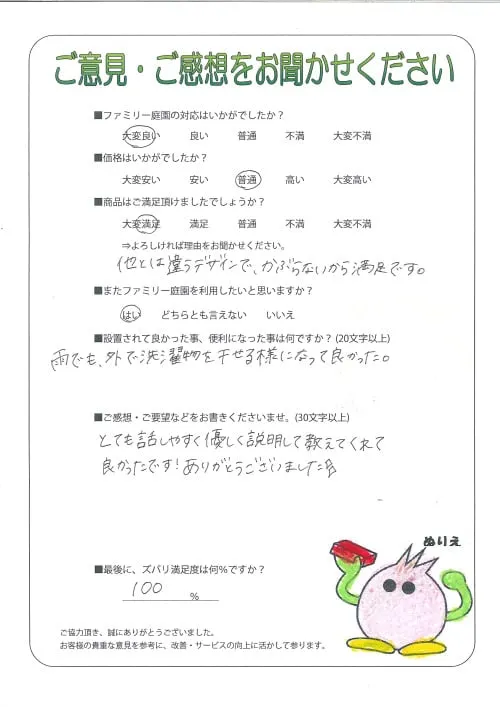 ご意見・ご感想をお聞かせください
■ファミリー庭園の対応はいかがでしたか？
大変良い 良い 普通 不満 大変不満
■価格はいかがでしたか？
大変安い 安い 普通 高い 大変高い
■商品はご満足頂けましたでしょうか？
大変満足 満足 普通 不満 大変不満
⇒よろしければ理由をお聞かせください。
他とは違うデザインで、かぶらないから満足です。
■またファミリー庭園を利用したいと思いますか？
はい どちらとも言えない いいえ
■設置されて良かった事、便利になった事は何ですか？(20文字以上)
雨でも、外で洗濯物を干せる様になって良かった。
■ご感想・ご要望などをお書きくださいませ。(30文字以上)
とても話しやすく優しく説明して教えてくれて
良かったです！ありがとうございました
ぬりえ
■最後に、ズバリ満足度は何％ですか？
100 ％
ご協力頂き、誠にありがとうございました。
お客様の貴重な意見を参考に、改善・サービスの向上に活かして参ります。